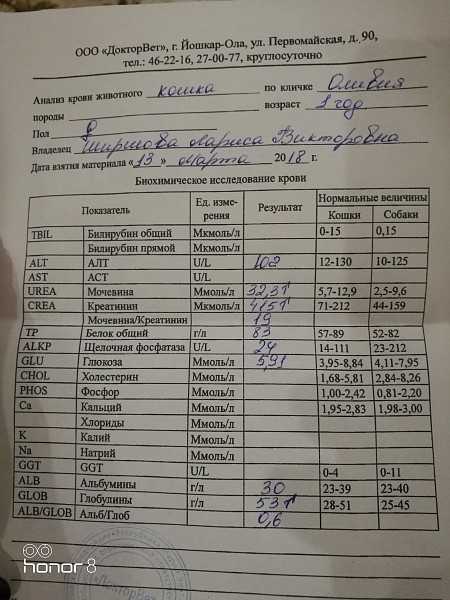 ООО «ДокторВет», г. Йошкар-Ола, ул. Первомайская, д. 90,
тел.: 46-22-16, 27-00-77, круглосуточно
Анализ крови животного кошка по кличке Оливия
породы возраст 1 год
Пол ♀
Владелец Ширшова Лариса Викторовна
Дата взятия материала «13» марта 2018 г.
Биохимическое исследование крови
Показатель Ед. изме- Результат Нормальные величины
рения Кошки Собаки
TBIL Билирубин общий Мкмоль/л 0-15 0,15
Билирубин прямой Мкмоль/л
ALT АЛТ U/L 102 12-130 10-125
AST АСТ U/L
UREA Мочевина Ммоль/л 32,31↑ 5,7-12,9 2,5-9,6
CREA Креатинин Мкмоль/л 415↑ 71-212 44-159
Мочевина/Креатинин 19
TP Белок общий г/л 83 57-89 52-82
ALKP Щелочная фосфатаза U/L 24 14-111 23-212
GLU Глюкоза Ммоль/л 5,91 3,95-8,84 4,11-7,95
CHOL Холестерин Ммоль/л 1,68-5,81 2,84-8,26
PHOS Фосфор Ммоль/л 1,00-2,42 0,81-2,20
Ca Кальций Ммоль/л 1,95-2,83 1,98-3,00
Хлориды Ммоль/л
K Калий Ммоль/л
Na Натрий Ммоль/л
GGT GGT U/L 0-4 0-11
ALB Альбумины г/л 30 23-39 23-40
GLOB Глобулины г/л 53↑ 28-51 25-45
ALB/GLOB Альб/Глоб 0,6
«ДокторВет»
honor 8